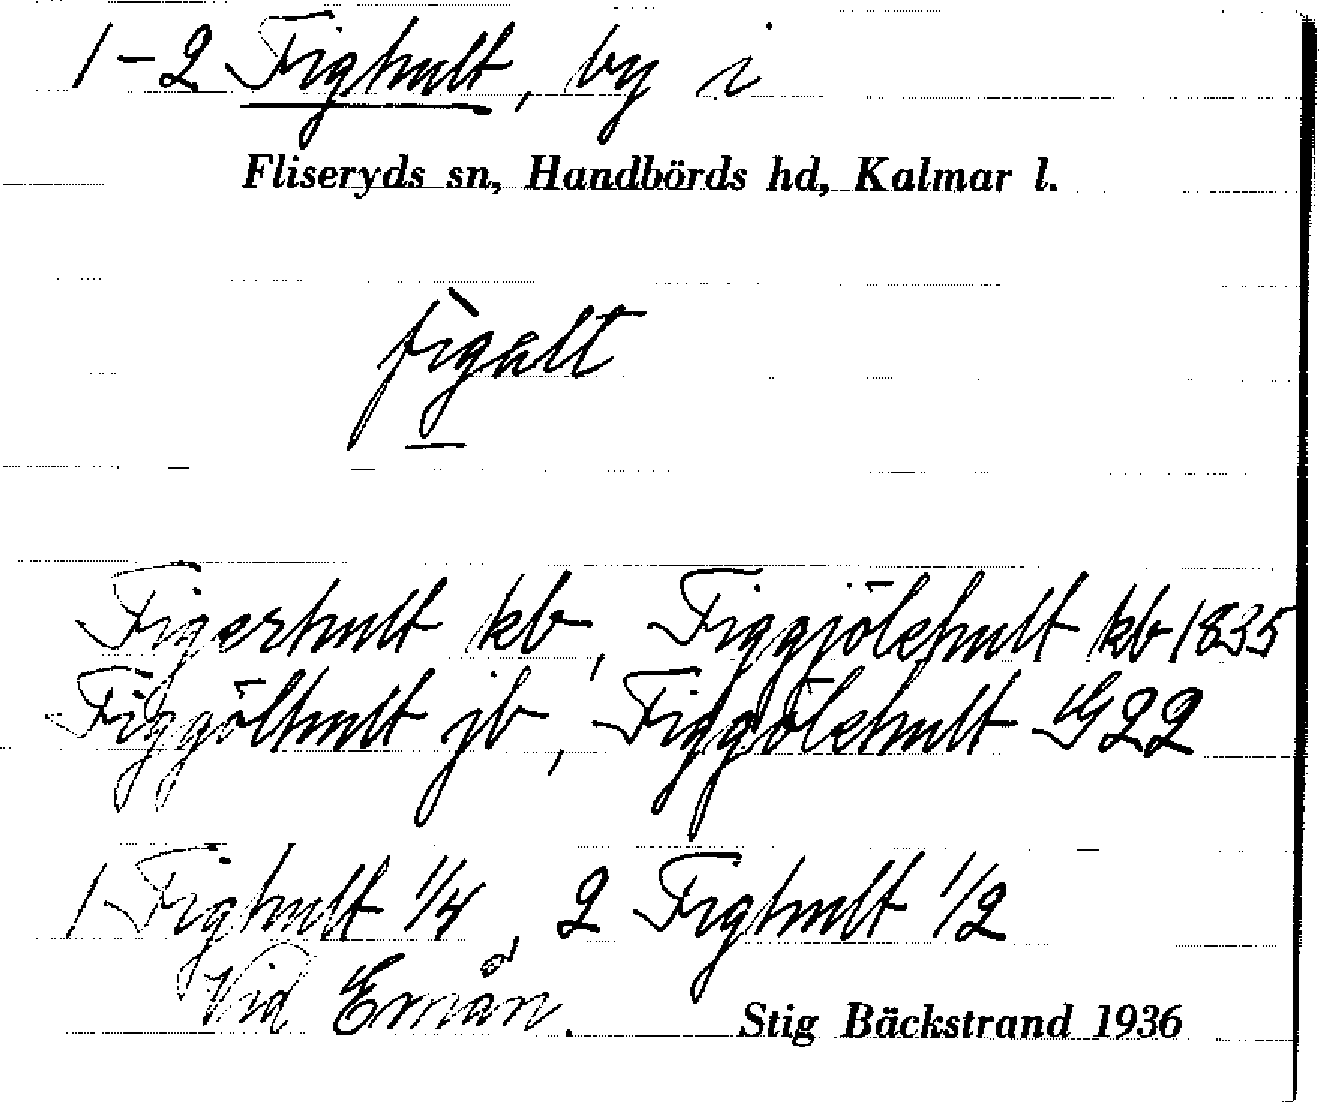 1-2 Fighult, by i
Fliseryds sn, Handbörds hd, Kalmar l.
fìgalt
Figerhult kb, Figgjölehult kb 1835
Figgölhult jb, Figgölehult G22
1 Fighult 1/4, 2 Fighult 1/2
Vid Emån.
Stig Bäckstrand 1936